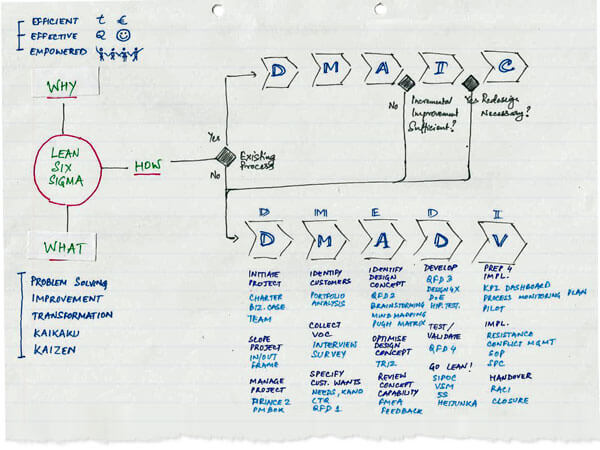 EFFICIENT t €
EFFECTIVE Q
EMPOWERED
WHY
LEAN
SIX
SIGMA
HOW
WHAT
PROBLEM SOLVING
IMPROVEMENT
TRANSFORMATION
KAIKAKU
KAIZEN
Yes
No
Existing
Process
D M A I C
No
Incremental
Improvement
Sufficient?
Yes
Redesign
Necessary?
D M E D I
D M A D V
INITIATE
PROJECT
CHARTER
BIZ. CASE
TEAM
SCOPE
PROJECT
IN/OUT
FRAME
MANAGE
PROJECT
PRINCE 2
PMBOK
IDENTIFY
CUSTOMERS
PORTFOLIO
ANALYSIS
COLLECT
VOC
INTERVIEW
SURVEY
SPECIFY
CUST. WANTS
NEEDS, KANO
CTQ
QFD 1
IDENTIFY
DESIGN
CONCEPT
QFD 2
BRAINSTORMING
MIND MAPPING
PUGH MATRIX
OPTIMISE
DESIGN
CONCEPT
TRIZ
REVIEW
CONCEPT
CAPABILITY
FMEA
FEEDBACK
DEVELOP
QFD 3
DESIGN 4X
DoE
HYP. TEST.
TEST/
VALIDATE
QFD 4
GO LEAN!
SIPOC
VSM
5S
HEIJUNKA
PREP 4
IMPL.
KPI DASHBOARD
PROCESS MONITORING PLAN
PILOT
IMPL.
RESISTANCE
CONFLICT MGMT
SOP
SPC
HANDOVER
RACI
CLOSURE